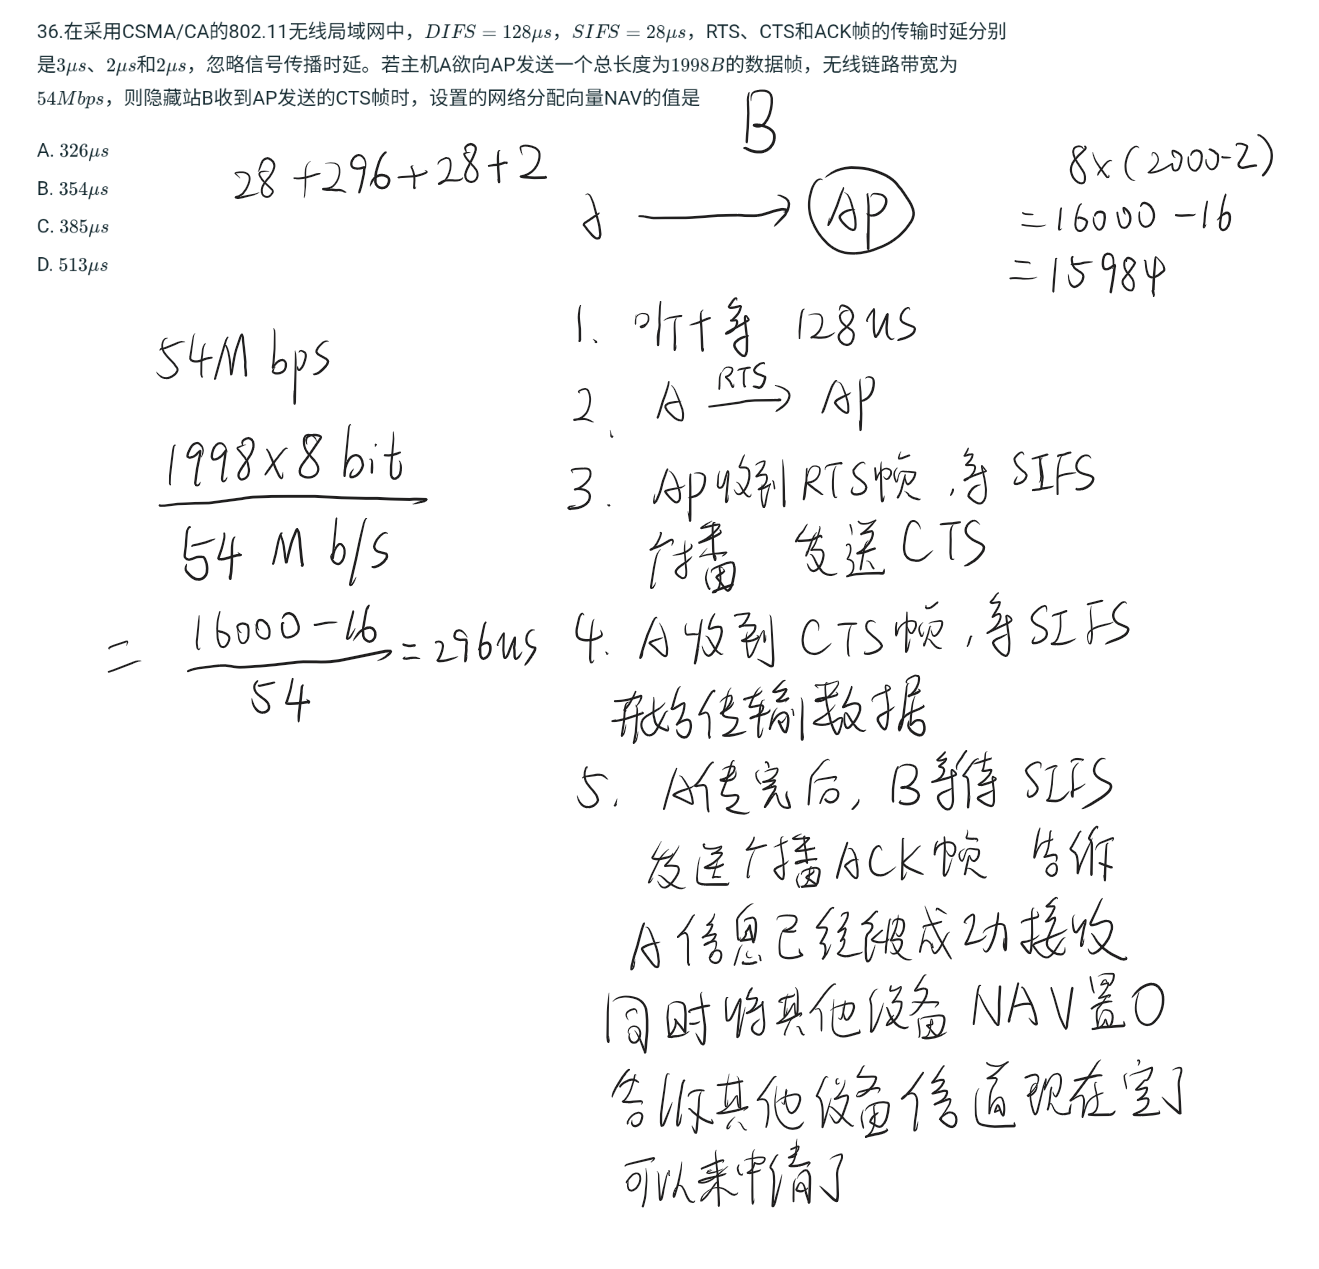 36.在采用CSMA/CA的802.11无线局域网中，DIFS = 128μs，SIFS = 28μs，RTS、CTS和ACK帧的传输时延分别
是3μs、2μs和2μs，忽略信号传播时延。若主机A欲向AP发送一个总长度为1998B的数据帧，无线链路带宽为
54Mbps，则隐藏站B收到AP发送的CTS帧时，设置的网络分配向量NAV的值是
A. 326μs
B. 354μs
C. 385μs
D. 513μs
28+296+28+2
B
A → AP
8×(2000-2)
=16000-16
=15984
54M bps
1998×8 bit
54 M b/s
= 16000-16
54
=296us
1. 听+等 128us
2. A RTS→ AP
3. AP收到RTS帧，等SIFS
广播 发送CTS
4. A收到CTS帧，等SIFS
开始传输数据
5. A传完后，B等待 SIFS
发送广播ACK帧 告诉
A信息已经被成功接收
同时将其他设备NAV置0
告诉其他设备信道现在空了
可以来申请了